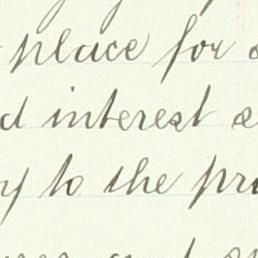 place for
d interest
y to the pr